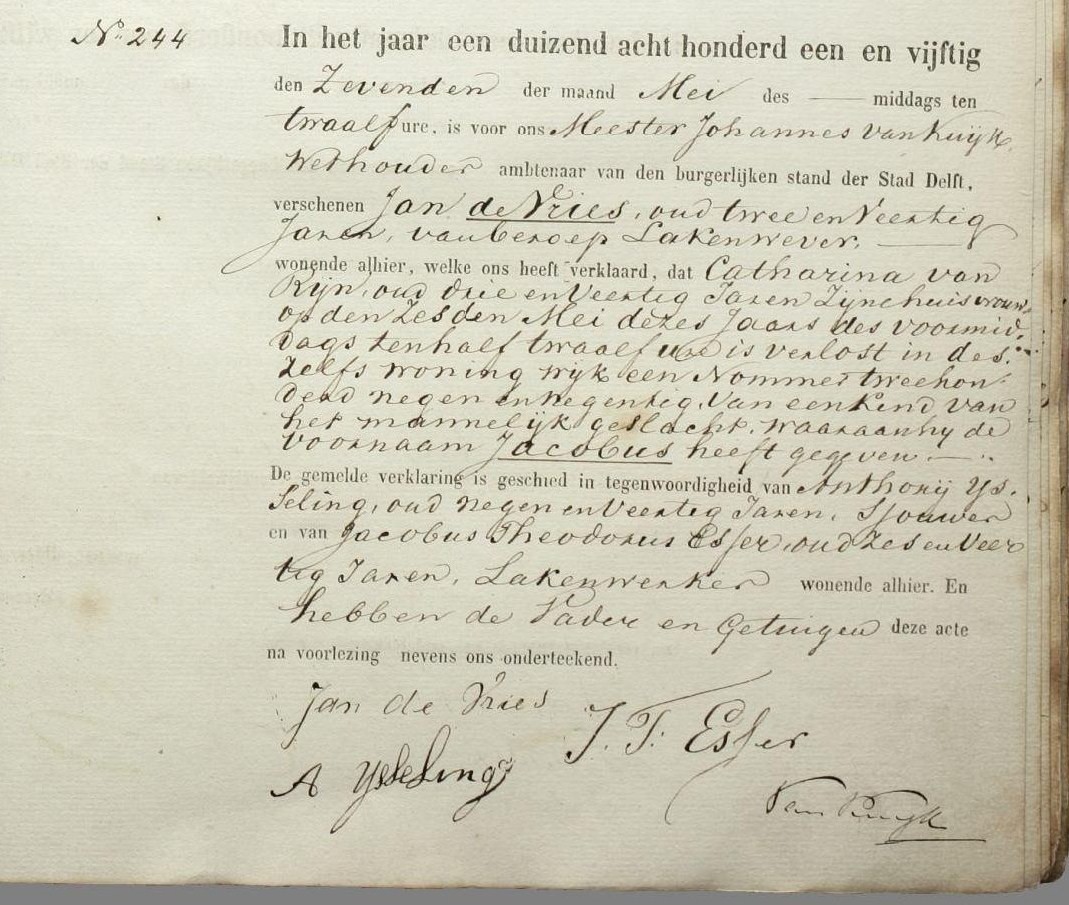 No. 244
In het jaar een duizend acht honderd een en vijftig
den Zevenden der maand Mei des —— middags ten
twaalf ure, is voor ons Meester Johannes van Kuijk,
Wethouder ambtenaar van den burgerlijken stand der Stad Delft,
verschenen Jan de Vries, oud twee en Veertig
Jaren, van beroep Lakenwever, ——
wonende alhier, welke ons heeft verklaard, dat Catharina van
Rijn, oud drie en Veertig Jaren Zijne huisvrouw,
op den Zesden Mei dezes Jaars des voormid,
dags ten half twaalf ure is verlost in des,
Zelfs woning wijk een Nommer twee hon,
derd negen en negentig, Van een Kind van
het mannelijk geslacht, waaraan hy de
voornaam Jacobus heeft gegeven. —
De gemelde verklaring is geschied in tegenwoordigheid van Anthonij Ys,
seling, oud negen en Veertig Jaren, Sjouwer
en van Jacobus Theodorus Esser, oud Zes en Veer
tig Jaren, Lakenwerker wonende alhier. En
hebben de Vader en Getuigen deze acte
na voorlezing nevens ons onderteekend.
Jan de Vries
J. T. Esser
A Ysseling
Van Kuijk